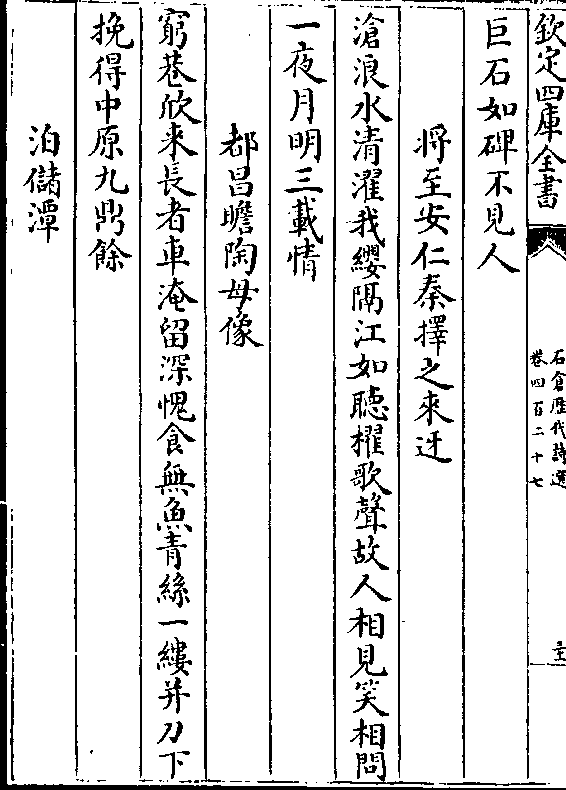 欽定四庫全書
石倉歷代詩選
卷四百二十七
巨石如碑不見人
將至安仁秦擇之來迓
滄浪水清濯我纓隔江如聽櫂歌聲故人相見笑相問
一夜月明三載情
都昌瞻陶母像
窮巷欣来長者車淹留深愧食無魚青絲一縷并刀下
挽得中原九鼎餘
泊儲潭